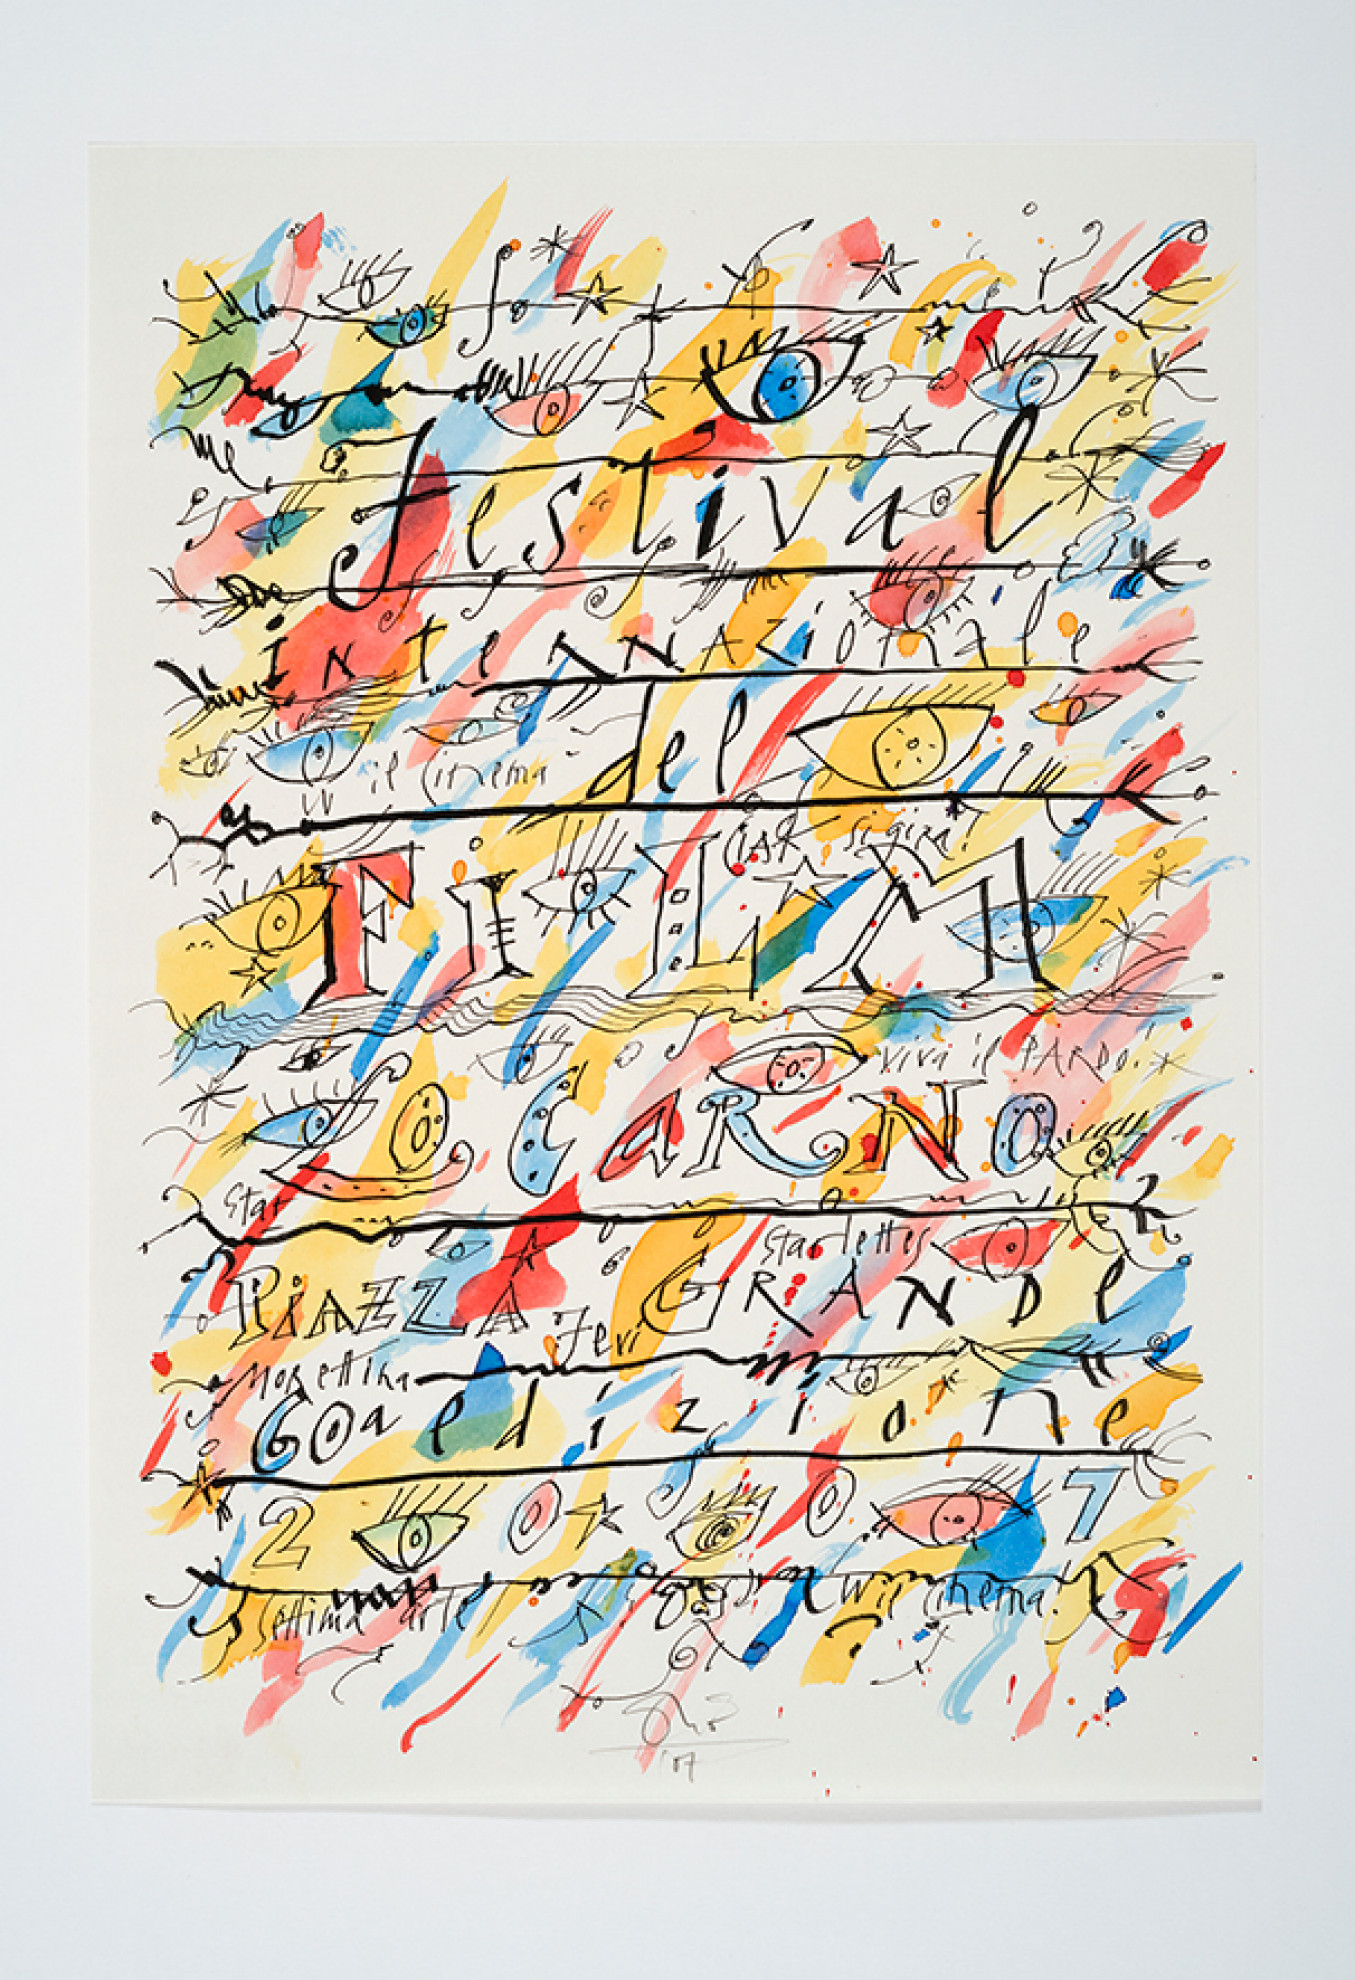 festival
internazionale
il cinema
del
CIAK si gira!
FiLM
viva il PARDO!
LOCARNO
Star
Starlettes
PiAZZA GRANDE
Morettina
Fevi
60a edizione
2007
settima arte
W il cinema!
'07